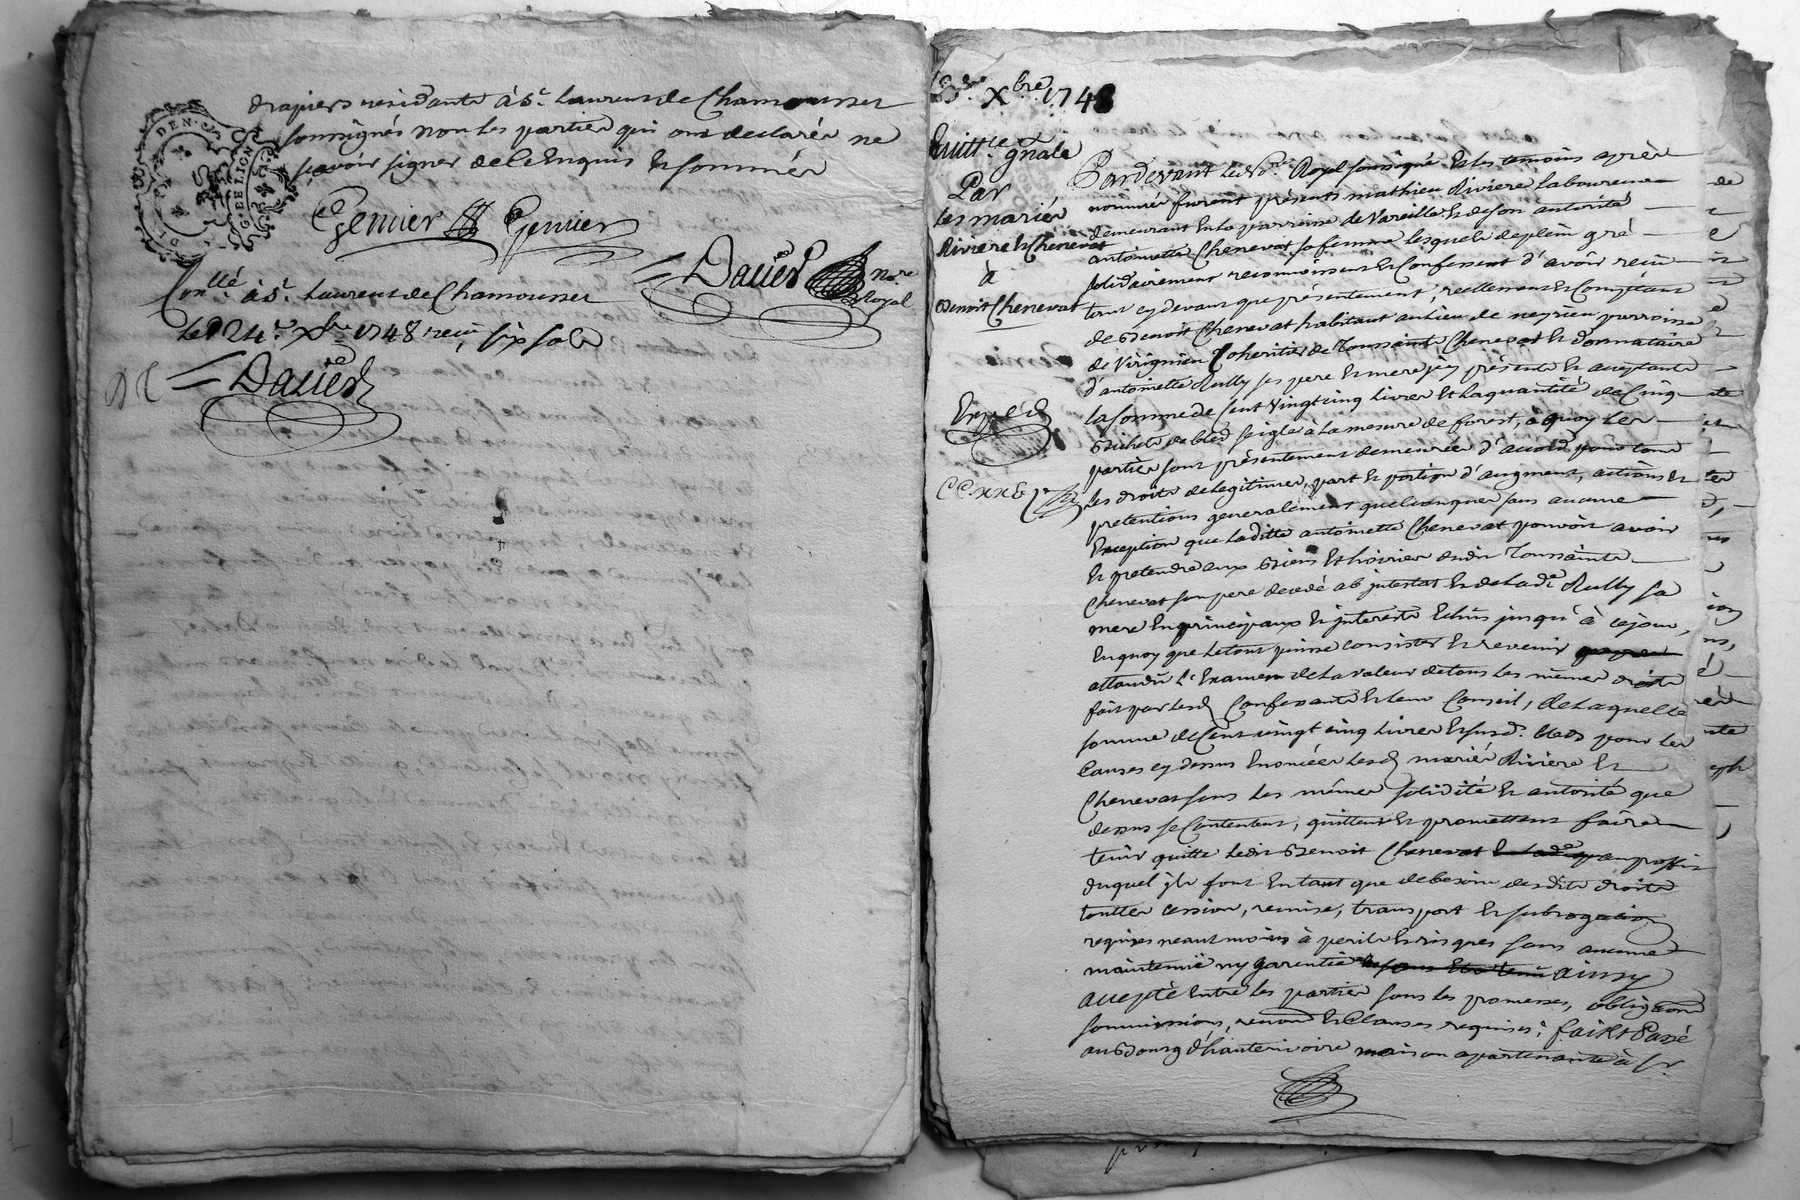 drapiers residants à St. Laurent de Chamousset
soussignés non les parties qui ont declarés ne
sçavoir signer de ce Enquis Et sommés
Genvier Genvier
Dauerd Nore Royal
Conllé à St. Laurent de Chamousset
Le 24e Xbre 1748 reçu six sols
Dauerd
Xbre 1748
Quittce gnale
Par
Les mariés
Riviere Et Chenevat
à
Benoit Chenevat
Exped
Pardevant Le No.re Royal soussigné Et Les temoins après
nommés furent présents mathieu Riviere Laboureur
demeurant En La parroisse de Vareille Et de son autorité
antoinette Chenevat sa femme Lesquels de plein gré
solidairement reconnoissent Et Confessent d'avoir reçu
tant cy devant que présentement, reellement Et Comptant
de Benoit Chenevat habitant au Lieu de neyrieu parroisse
de Virignieu Coheritier de Toussaint Chenevat Et donnataire
d'antoinette Rully ses pere Et mere jcy présente Et aceptante
La somme de Cent Vingt cinq Livres Et La quantité de Cinq
Bichets de bled seigle à La mesure de forest, à quoy Les
parties sont présentement demeurées d'acord pour tous
Les droits de Legitimes, part Et portion d'augment, actions Et
pretentions generalement quelconques sans aucune
Exception que Laditte antoinette Chenevat pouvoit avoir
Et pretendre aux Biens Et hoirier dudit Toussaints
Chenevat son pere decedé ab jntestat Et de Lade Rully sa
mere En principaux Et jnterests Echûs jusqu'à ce jour,
En quoy que Le tout puisse consister Et revenir
attendu L'Examen de La valeur de tous Les mêmes droits
fait par Lesd Confessants Et Leur Conseil, de Laquelle
somme de Cent vingt cinq Livres Et susd. Bleds pour Les
Causes cy dessus Enoncées Lesd mariés Riviere Et
Chenevat sous Les mêmes solidité Et autorité que
dessus se Contentent, quittent Et promettent faire
tenir quitte Ledit Benoit Chenevat au proffit
duquel jls font En tant que de besoin desdits droits
touttes cession, remise, transport Et subrogation
requises neantmoins à perils Et risques sans aucune
maintenüe ny garentie ainsy
accepté Entre Les parties sous Les promesses, obligaons
soumissions, renons Et Clauses requises; fait Et Passé
au Bourg d'hauterivoire maison apartenante à Sr.